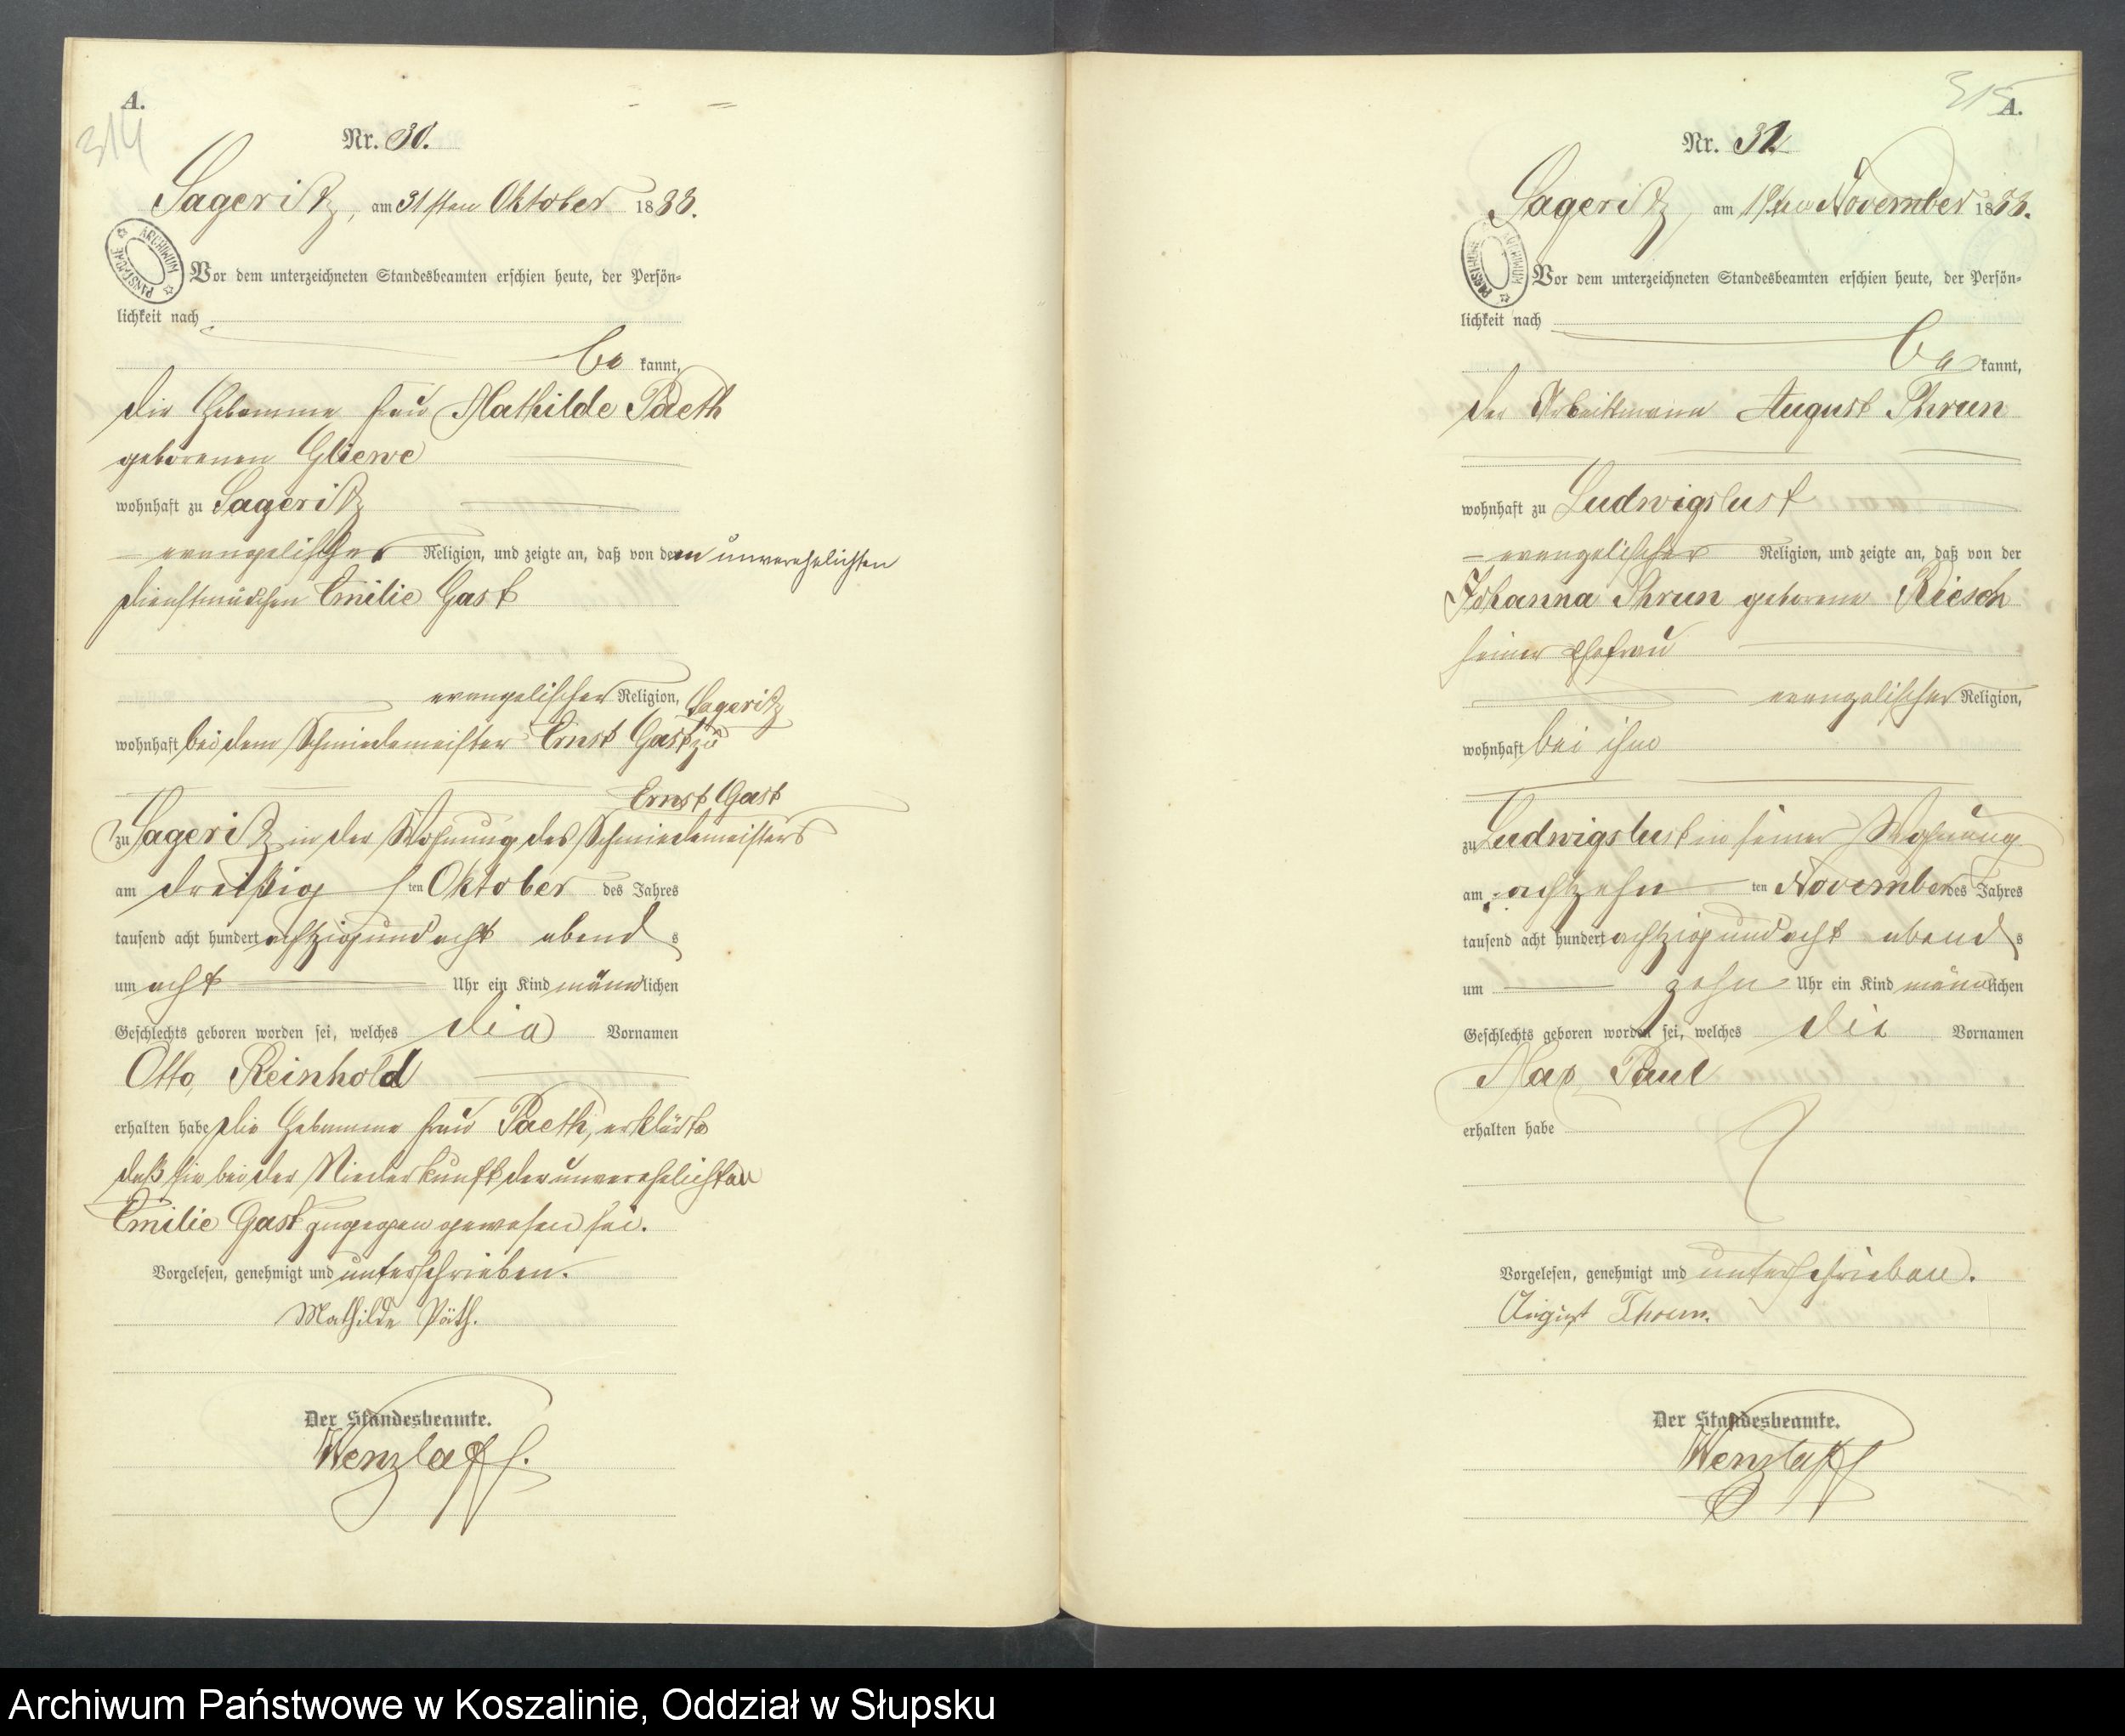 A.
314
Nr. 30.
Sageritz, am 31sten Oktober 1888.
ARCHIWUM PAŃSTWOWE
Vor dem unterzeichneten Standesbeamten erschien heute, der Persön-
lichkeit nach
be kannt,
die Hebamme Frau Mathilde Paeth
geborenen Gliewe
wohnhaft zu Sageritz
evangelischer Religion, und zeigte an, daß von deren unverehelichten
Dienstmädchen Emilie Gast
evangelischer Religion,
wohnhaft bei dem Schmiedemeister Ernst Gast zu Sageritz
Ernst Gast
zu Sageritz in der Wohnung des Schmiedemeisters
am dreißigsten Oktober des Jahres
tausend acht hundert achtzig und acht abends
um acht Uhr ein Kind männlichen
Geschlechts geboren worden sei, welches die Vornamen
Otto, Reinhold
erhalten habe Die Hebamme Frau Paeth, erklärte
daß sie bei der Niederkunft der unverehelichten
Emilie Gast zugegen gewesen sei.
Vorgelesen, genehmigt und unterschrieben.
Mathilde Päth.
Der Standesbeamte.
Wenzlaff.
315
A.
Nr. 31.
Sageritz, am 19ten November 1888.
ARCHIWUM PAŃSTWOWE
Vor dem unterzeichneten Standesbeamten erschien heute, der Persön-
lichkeit nach
be kannt,
der Arbeitsmann August Thrun
wohnhaft zu Ludwigslust
evangelischer Religion, und zeigte an, daß von der
Johanna Thrun geborene Riesch
seiner Ehefrau
evangelischer Religion,
wohnhaft bei ihm
zu Ludwigslust in seiner Wohnung
am achtzehn ten November des Jahres
tausend acht hundert achtzig und acht abends
um zehn Uhr ein Kind männlichen
Geschlechts geboren worden sei, welches die Vornamen
Max Paul
erhalten habe
Vorgelesen, genehmigt und unterschrieben.
August Thrun.
Der Standesbeamte.
Wenzlaff
Archiwum Państwowe w Koszalinie, Oddział w Słupsku